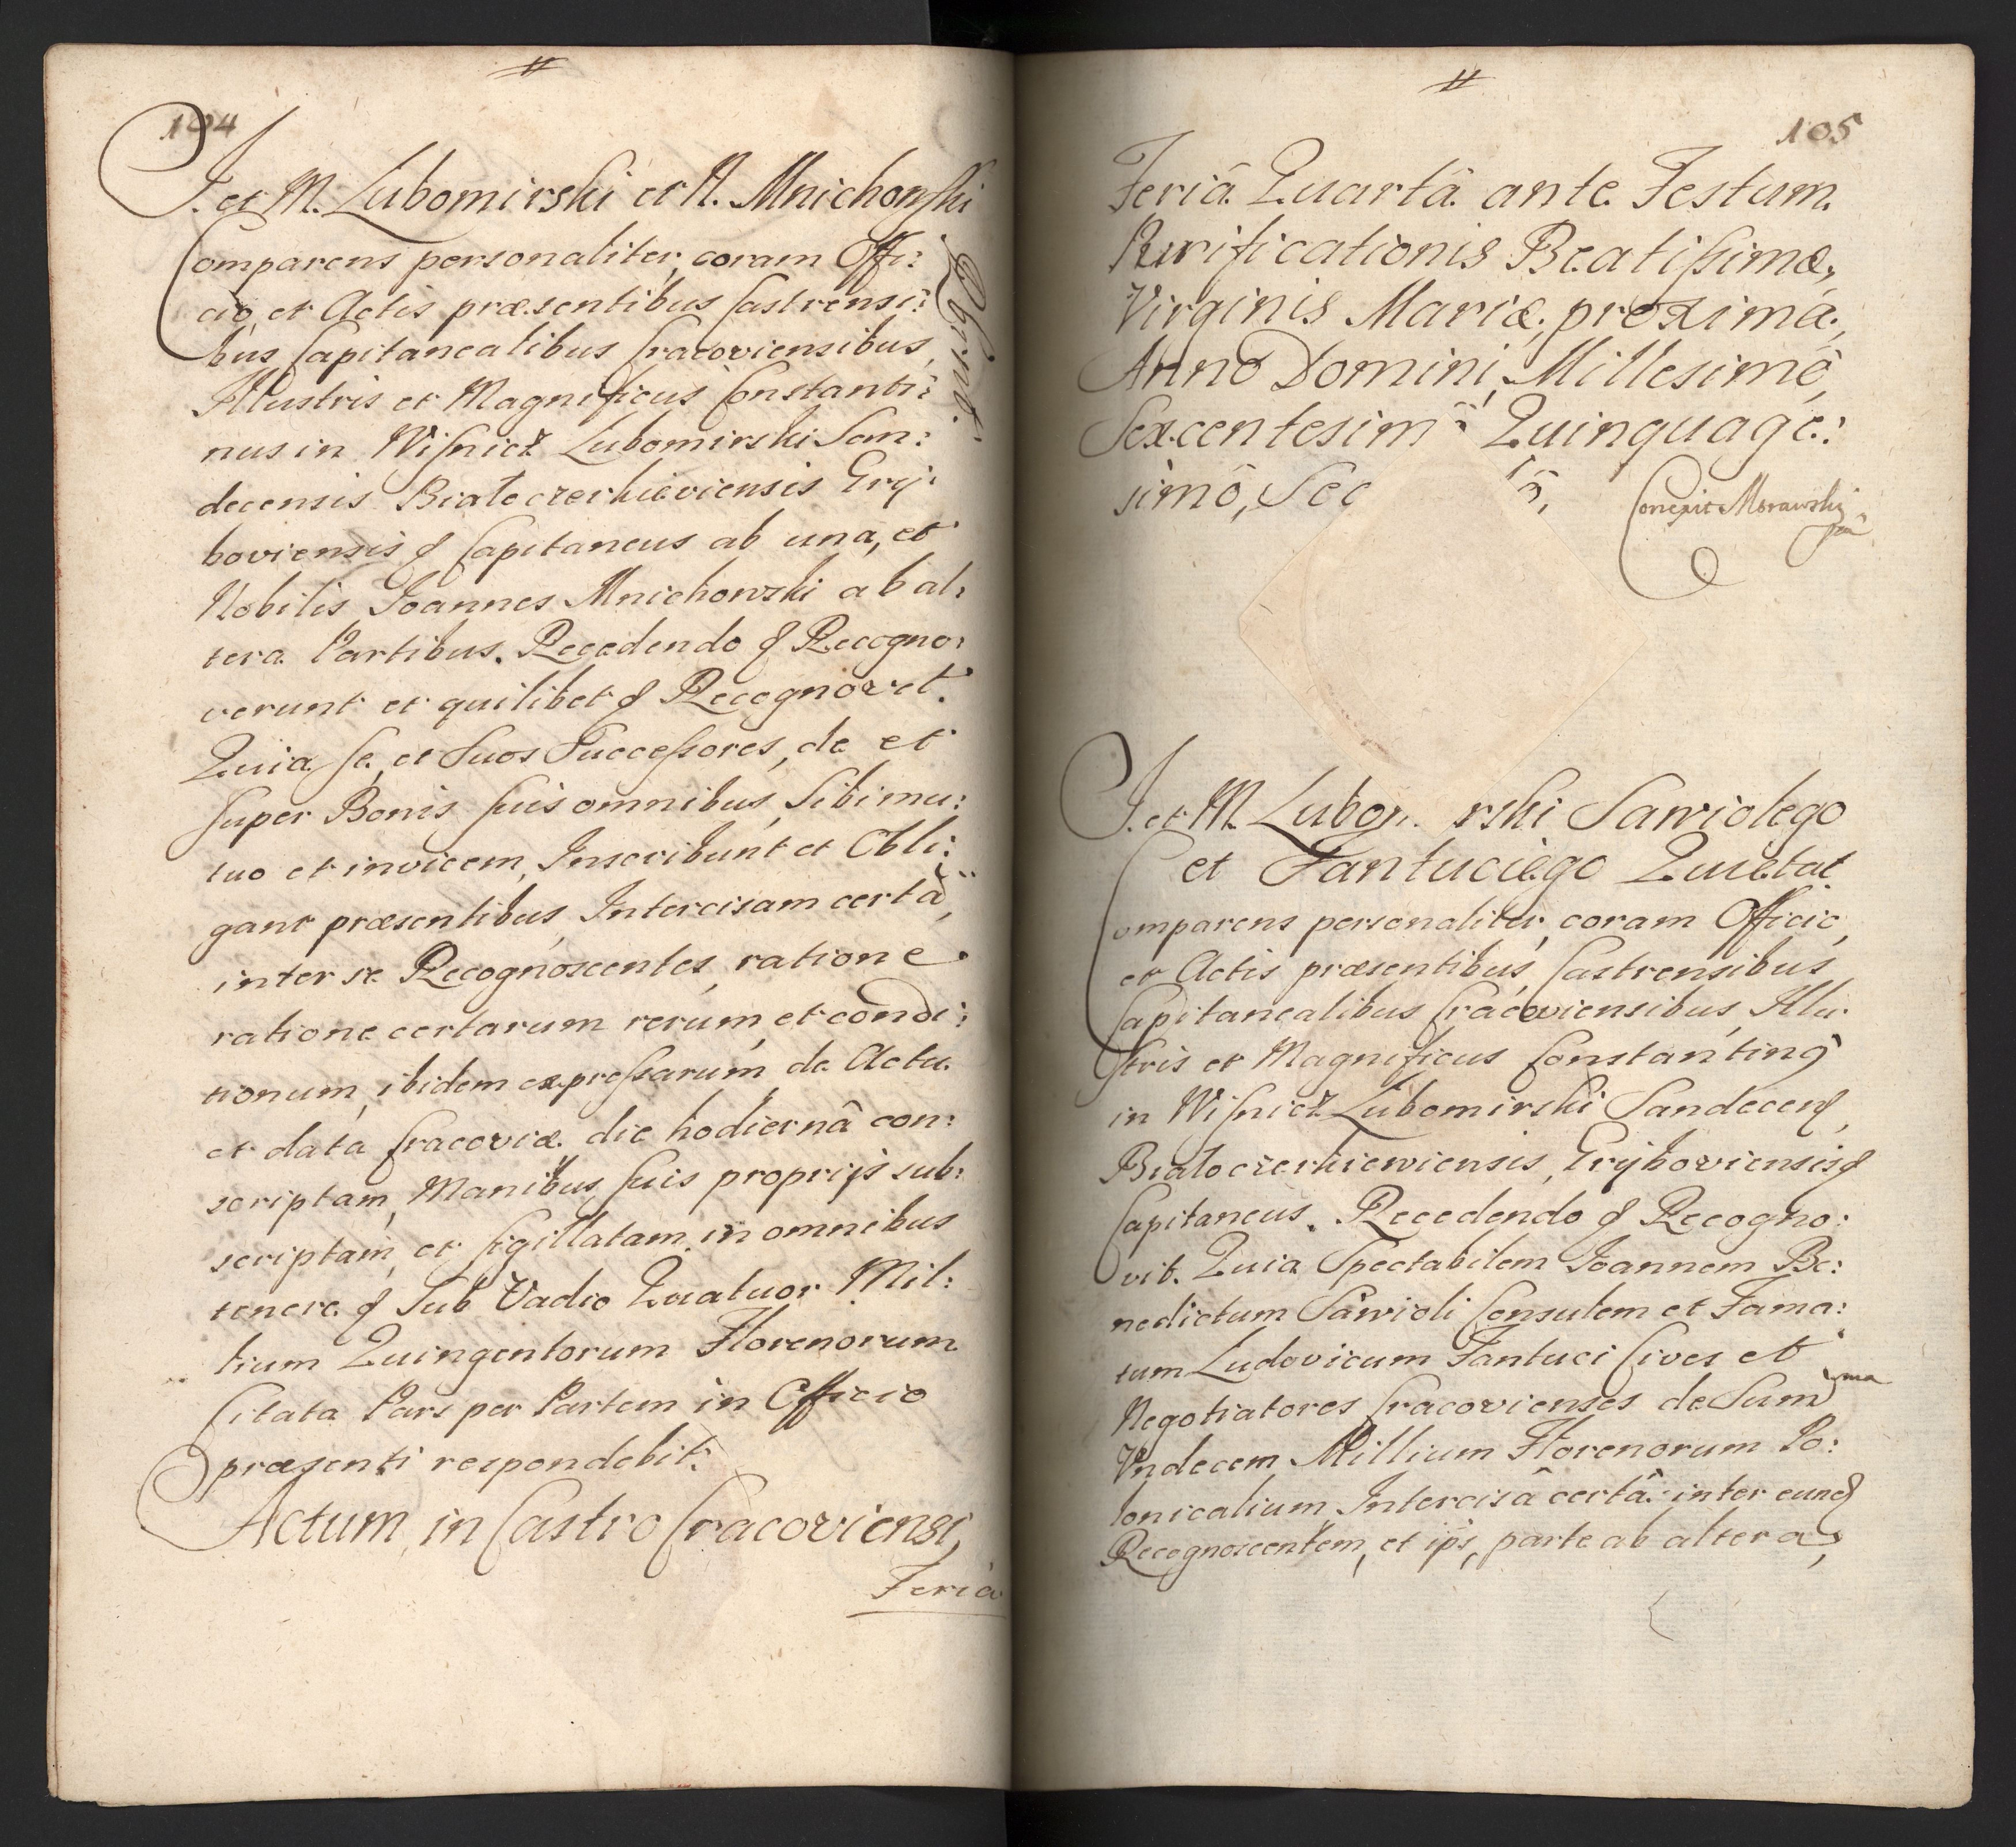 104
I. et M. Lubomirski et N. Mnichowski
Comparens personaliter, coram Offi:
cio, et Actis præsentibus Castrensi:
bus Capitanealibus Cracoviensibus,
Illustris et Magnificus Constanti:
nus in Wisnicz Lubomirski San:
decensis Bialoczerkieviensis Gry:
boviensis & Capitaneus ab una, et
Nobilis Joannes Mnichowski ab al:
tera Partibus. Recedendo & Recogno:
verunt et quilibet & Recognovit.
Quia se, et Suos Successores, de et
super Bonis suis omnibus, Sibi mu:
tuo et invicem, Inscribunt et Obli:
gant præsentibus, Intercisam certã,
inter se Recognoscentes, ratione
ratione certarum rerum, et condi:
tionum, ibidem expressarum, de Actu
et data Cracoviæ die hodiernâ con:
scriptam, Manibus suis proprijs sub:
scriptam, et sigillatam, in omnibus
tenere & Sub Vadio Quatuor Mil:
lium Quingentorum Florenorum
Citata Pars per Partem in Officio
præsenti respondebit.
Actum, in Castro Cracoviensi,
Feriâ
105
Feriâ Quartâ ante Festum
Purificationis Beatissimæ,
Virginis Mariæ, proximâ,
Anno Domini, Millesimô,
Sexcentesim Quinquage:
simô, Sec ô,
Correxit Morawski
I. et M. Lubom rski Sawiolego
et Fantuciego Quietat
Comparens personaliter, coram Officio,
et Actis præsentibus, Castrensibus
Capitanealibus Cracoviensibus, Illu:
stris et Magnificus Constantinus
in Wisnicz Lubomirski Sandecens,
Bialoczerkiewiensis, Gryboviensis &
Capitaneus. Recedendo & Recogno:
vit. Quia Spectabilem Joannem Be:
nedictum Sawioli Consulem et Fama:
tum Ludovicum Fantuci Cives et
Negotiatores Cracovienses de Summa
Undecem Millium Florenorum Po:
lonicalium, Intercisâ certâ inter eund
Recognoscentem, et ips, parte ab altera,